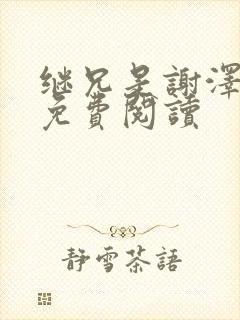 继兄是謝澤
免費閱讀
靜雪茶語